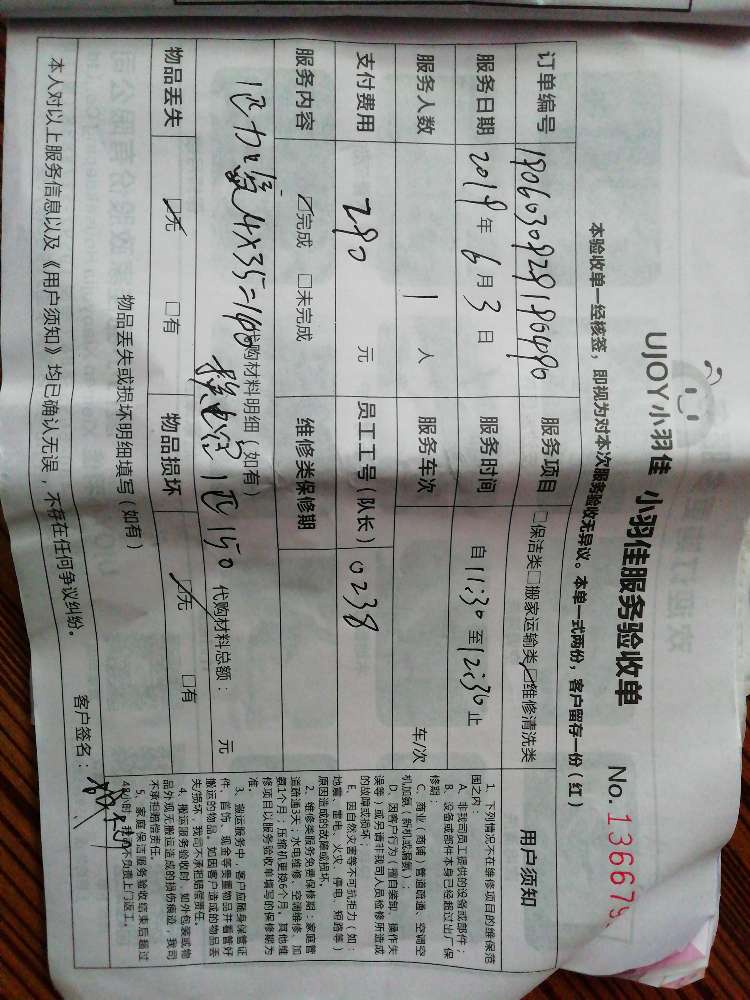 UJOY小羽佳 小羽佳服务验收单
No. 136679
本验收单一经核签，即视为对本次服务验收无异议。本单一式两份，客户留存一份（红）
订单编号 服务项目 □保洁类□搬家运输类☑维修清洗类
服务日期 2018年6月3日 服务时间 自11:30至12:30止
服务人数 1 人 服务车次 车/次
支付费用 290 元 员工工号(队长) 0238
服务内容 ☑完成 □未完成 维修类保修期
代购材料明细（如有）
4×35=140
150 代购材料总额： 元
物品丢失 ☑无 □有 物品损坏 ☑无 □有
物品丢失或损坏明细填写（如有）
本人对以上服务信息以及《用户须知》均已确认无误，不存在任何争议纠纷。 客户签名：
用户须知
1、下列情况不在维修项目的维保范
围之内：
A、非我司员工提供的设备或部件；
B、设备或部件本身已经超过出厂保
修期；
C、商业（商铺）管道疏通、空调空
机加氨（拆机或漏氨）；
D、因客户行为（擅自装卸、操作失
误等）或另请非我司人员检修所造成
的故障或损坏
E、因自然灾害等不可抗拒力（如：
地震、雷电、火灾、停电、短路等）
原因造成的故障或损坏。
2、维修类服务免费保修期：家庭管
道疏通3天，水电维修、空调维修、加
氨1个月；压缩机更换6个月，其他维
修项目以服务验收单填写的保修期为
准。
3、搬运服务中，客户应随身保管证
件、首饰、现金等贵重物品并看管好
搬运的物品，如因客户造成的物品丢
失/损坏，我司不承担赔偿责任。
4、搬运服务验收时，如外包装或物
品外观无搬运造成的损伤痕迹，我司
不承担赔偿责任。
5、家庭保洁服务验收结束后超过